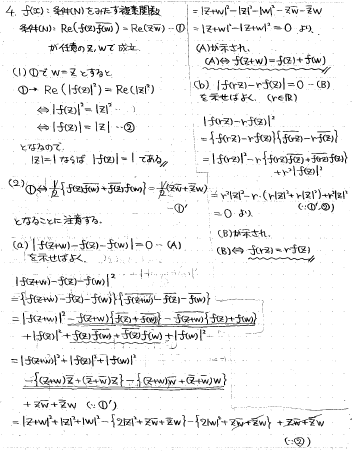 4. f(z): 条件(N)をみたす複素関数
条件(N): Re(f(z)\overline{f(w)}) = Re(z\overline{w}) - ①
が任意のz, wで成立.
(1) ①で w=z とすると
①→ Re(|f(z)|²) = Re|z|²
⇔ |f(z)|² = |z|²
⇔ |f(z)| = |z| …②
となるので.
|z|=1 ならば |f(z)|=1 である//
(2) ①⇔ ½{f(z)\overline{f(w)}+\overline{f(z)}f(w)} = ½(z\overline{w}+\overline{z}w) -①'
となることに注意する.
(a) |f(z+w)-f(z)-f(w)|=0 …(A)
を示せばよく.
|f(z+w)-f(z)-f(w)|²
={f(z+w)-f(z)-f(w)}{\overline{f(z+w)}-\overline{f(z)}-\overline{f(w)}}
=|f(z+w)|² -f(z+w){\overline{f(z)}+\overline{f(w)}} -\overline{f(z+w)}{f(z)+f(w)}
+|f(z)|² +f(z)\overline{f(w)}+\overline{f(z)}f(w)+|f(w)|²
=|f(z+w)|²+|f(z)|²+|f(w)|²
-{(z+w)\overline{z}+(\overline{z+w})z}-{(z+w)\overline{w}+(\overline{z+w})w}
+z\overline{w}+\overline{z}w (∵①')
=|z+w|²+|z|²+|w|² -{2|z|²+z\overline{w}+\overline{z}w}-{2|w|²+z\overline{w}+\overline{z}w} +z\overline{w}+\overline{z}w
(∵②)
=|z+w|²-|z|²-|w|²-z\overline{w}-\overline{z}w
=|z+w|²-|z+w|²=0 より.
(A)が示され.
(A)⇔ f(z+w)=f(z)+f(w)
(b) |f(rz)-rf(z)|=0 -(B)
を示せばよく. (r∈ℝ)
|f(rz)-rf(z)|²
={f(rz)-rf(z)}{\overline{f(rz)}-r\overline{f(z)}}
=|f(rz)|²-r{f(rz)\overline{f(z)}+\overline{f(rz)}f(z)}
+r²|f(z)|²
=r²|z|²-r·(r|z|²+r|z|²)+r²|z|²
=0 より. (∵①',②)
(B)が示され.
(B)⇔ f(rz)=rf(z)